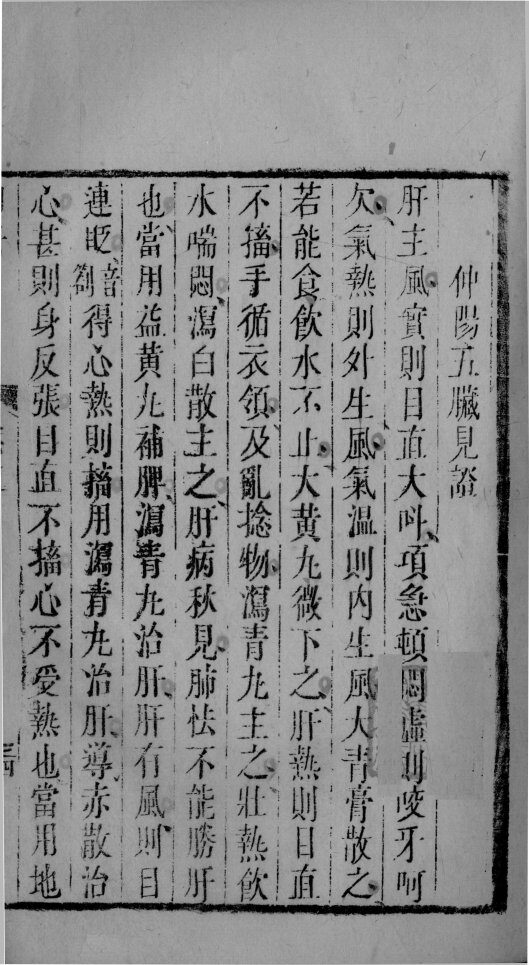 仲陽五臟見證
肝主風實則目直大呌項急頓悶虛則咬牙呵
欠氣熱則外生風氣溫則內生風大青膏散之
若能食飲水不止大黃丸微下之肝熱則目直
不搐手循衣領及亂捻物瀉青丸主之壯熱飲
水喘悶瀉白散主之肝病秋見肺怯不能勝肝
也當用益黃丸補脾瀉青丸治肝肝有風則目
連眨音劄得心熱則搐用瀉青丸治肝導赤散治
心甚則身反張目直不搐心不受熱也當用地